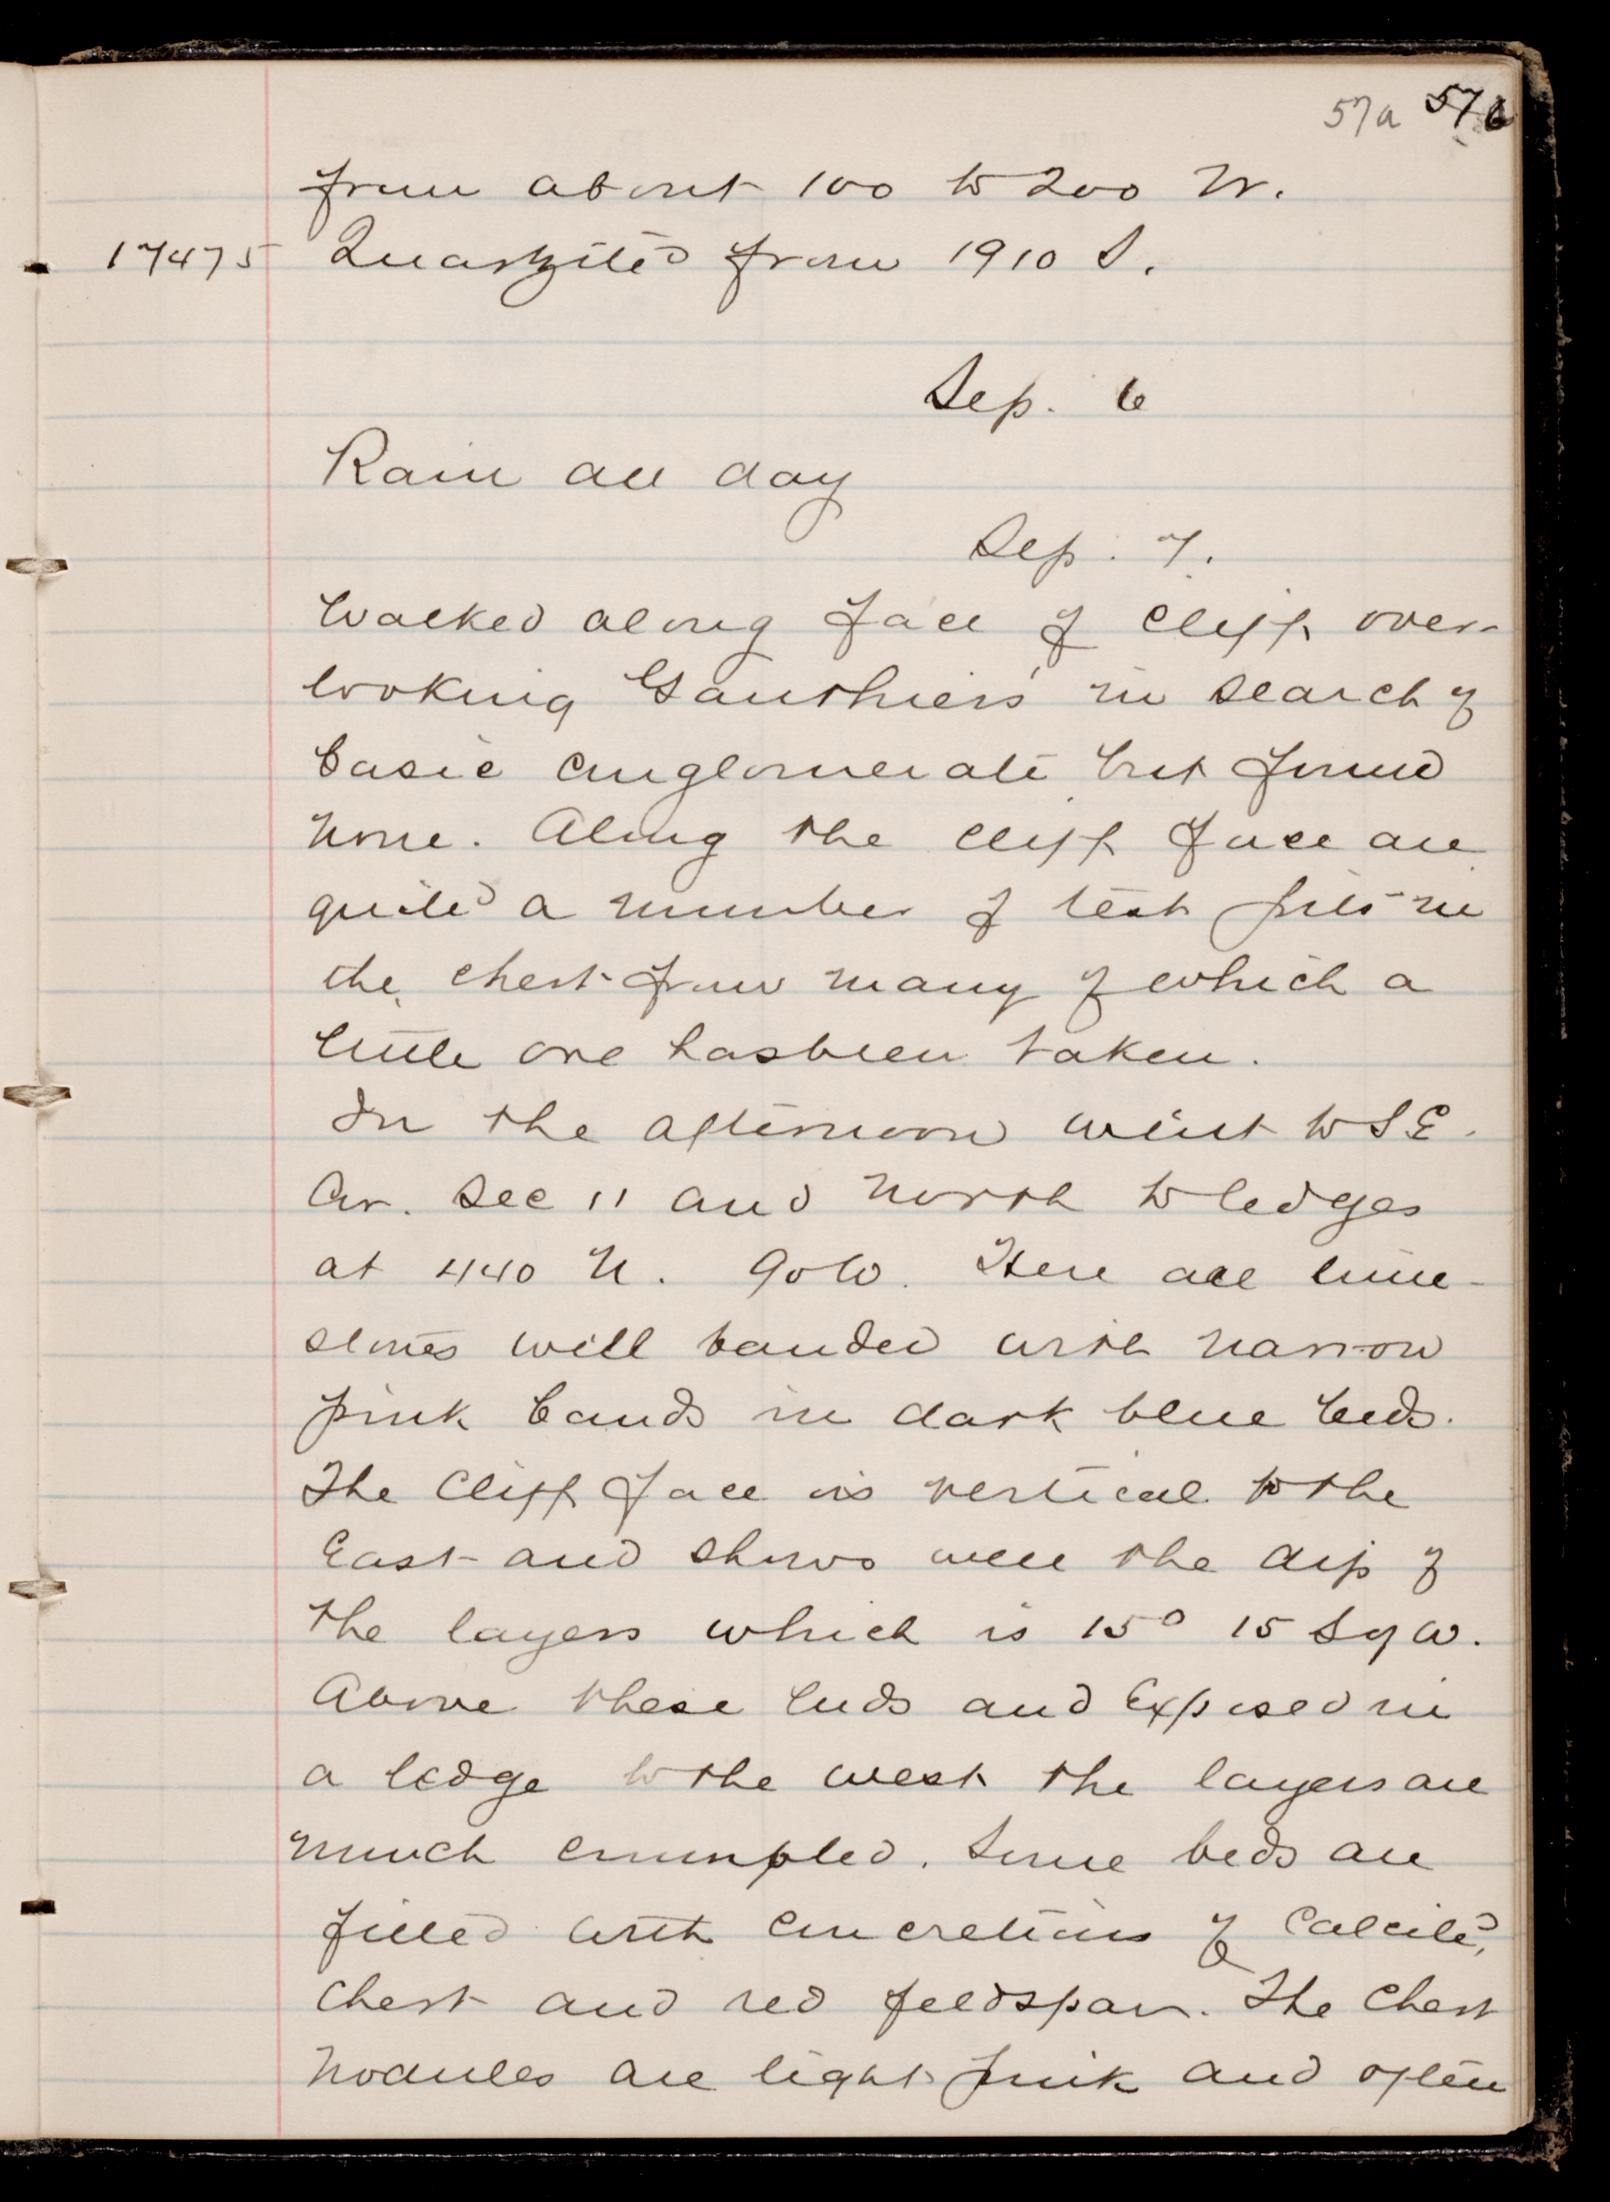 57a 576
from about 100 to 200 W.
17475 Quartzite from 1910 S.
Sep. 6
Rain all day
Sep. 7.
Walked along face of cliff over-
looking Gauthiers' in search of
basic conglomerate but found
none. Along the cliff face are
quite a number of test pits in
the chert from many of which a
little ore has been taken.
In the afternoon went to S E.
Cor. Sec 11 and north to ledges
at 440 N. 90 W. Here are lime-
stones well banded with narrow
pink bands in dark blue beds.
The cliff face is vertical to the
East and shows well the dip of
the layers which is 15° 15 S of W.
Above these beds and exposed in
a ledge to the west the layers are
much crumpled. Some beds are
filled with concretions of calcite,
chert and red feldspar. The chert
nodules are light pink and often